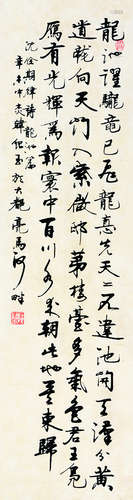 龍池躍龍龍已飛龍德先天天不違池開天漢分黃
道龍向天門入紫微邸第樓臺多氣色君王鳧
雁有光輝為報寰中百川水來朝此地莫東歸
沈佺期律詩龍池篇
於大觀亮馬河畔